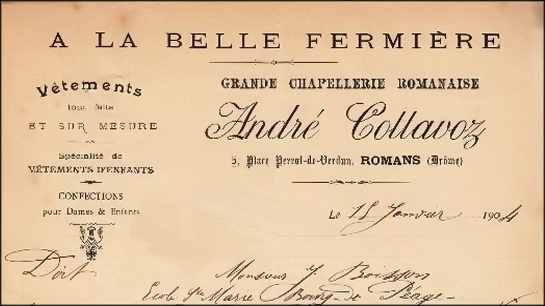 A LA BELLE FERMIÈRE
Vêtements
tout faits
ET SUR MESURE
Spécialité de
VÊTEMENTS D'ENFANTS
CONFECTIONS
pour Dames & Enfants
GRANDE CHAPELLERIE ROMANAISE
André Collavoz
5, Place Perrot-de-Verdun, ROMANS (Drôme)
Le 15 Janvier 1904
Doit
Monsieur J. Boisson
Ecole Ste Marie Bourg-de-Péage